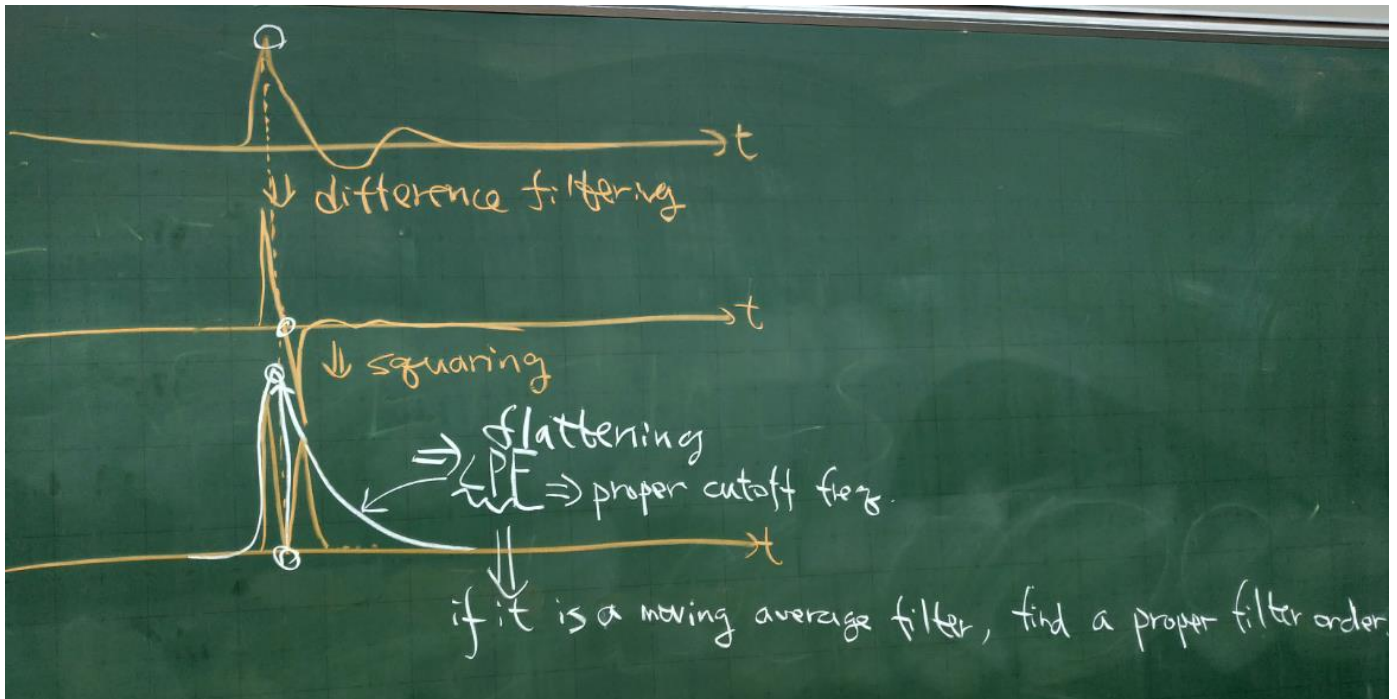 t
⇓ difference filtering
t
⇓ squaring
⇒ flattening
LPF ⇒ proper cutoff freq.
t
⇓
if it is a moving average filter, find a proper filter order.